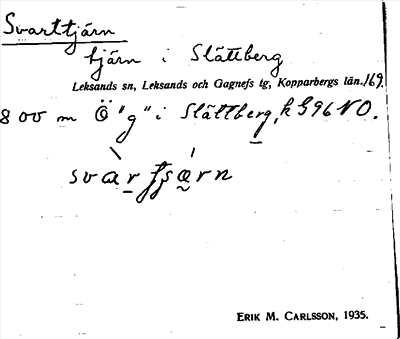 Svarttjärn
tjärn i Slättberg
Leksands sn, Leksands och Gagnefs tg, Kopparbergs län. 169.
800 m Ö "g" i Slättberg, k G96 NO.
ERIK M. CARLSSON, 1935.